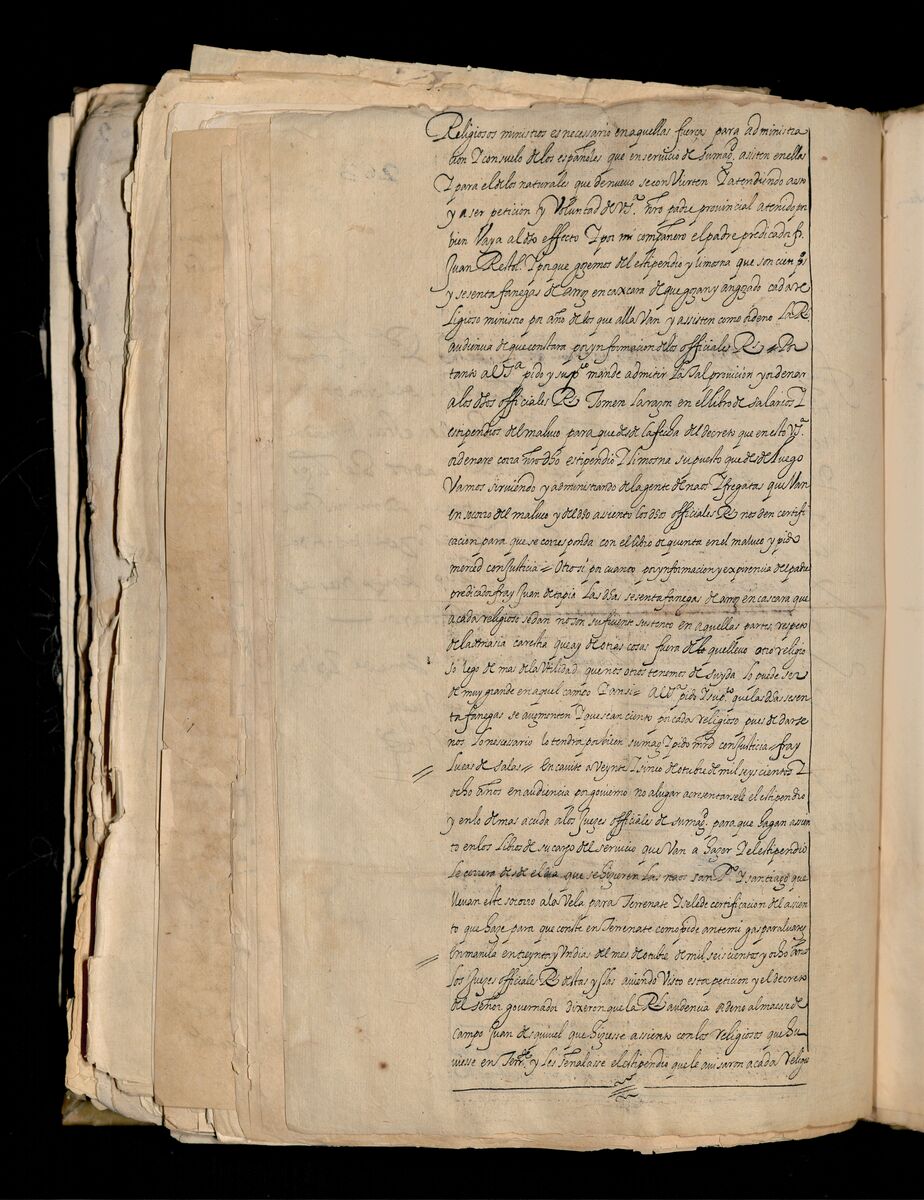 Religiosos ministros es necessario en aquellas fuerças para administra
cion I consuelo de los españoles que en servicio de su magd. asisten en ellas
I para el de los naturales que de nuevo se convierten I atendiendo a esto
y a ser peticion y voluntad de Vsª. nro padre provincial a tenido por
bien Vaya al dho effecto I por mi compañero el padre predicador fr.
Juan I porque gozemos del estipendio y limosna que son cien ps
y sesenta fanegas de arroz en caxcara de que gozan y an gozado cada re
ligioso ministro por año de los que alla Van y assisten como ordeno la R
audiencia de que constara por ynformacion de los officiales R Por
tanto a Vsª pido y supco mande admitir la tal provicion y ordenar
a los dhos officiales R Tomen la razon en el libro de salarios I
estipendios del maluco para que desde la fecha del decreto que en esto Vsª.
ordenare corra nro dho estipendio I limosna supuesto que desde luego
Vamos sirviendo y administrando de la gente de naos I fregatas que Van
en socorro del maluco y del dho asiento los dhos officiales R nos den certifi
cacion para que se corresponda con el libro de quenta en el maluco y pido
merced con Justicia = Otrosi por cuanto por ynformacion y expirencia del padre
predicador fray Juan de tapia Las dhas sesenta fanegas de arroz en cascara que
a cada religioso se dan no son sufficient sustento en aquellas partes, respeto
de la demasia carestia que ay de otras cosas fuera de lo que llevo otro religio
so lego de mas de la Vtilidad que nos otros tenemos de su yda lo puede ser
de muy grande en aquel campo I ansi = A Vsª pido I supco que las dhas sesen
ta fanegas se augmenten I que sean ciento por cada religioso pues de darse
nos lo nescessario lo tendra por bien su magd I pido mrd con Justicia = fray
Lucas de Salas = En cavite a Veynte I sinco de otubre de mil seys cientos I
ocho años en audiencia por govierno no a lugar acresentarsele el estipendio
y en lo demas acuda a los Juezes officiales de su magd. para que hagan assien
to en los libros de su cargo del servicio que Van a hazer I el estipendio
le correra desde el dia que se hizieren las naos san Po. I santiago que
llevan este socorro a la Vela para Terrenate I se le de certificacion del assien
to que haze para que conste en Terrenate como pide ante mi gaspar alvarez
En manila en treynta y Vn dias del mes de otubre de mil seiscientos y ocho años
Los Juezes officiales R destas yslas aviendo Visto esta peticion y el decreto
del señor governador dixeron que la Rl audencia ordeno al maese de
campo Juan de esquivel que hiziesse assiento con los religiosos que hu
viesse en Terre. y les señalasse el estipendio que le avisaron a cada religio